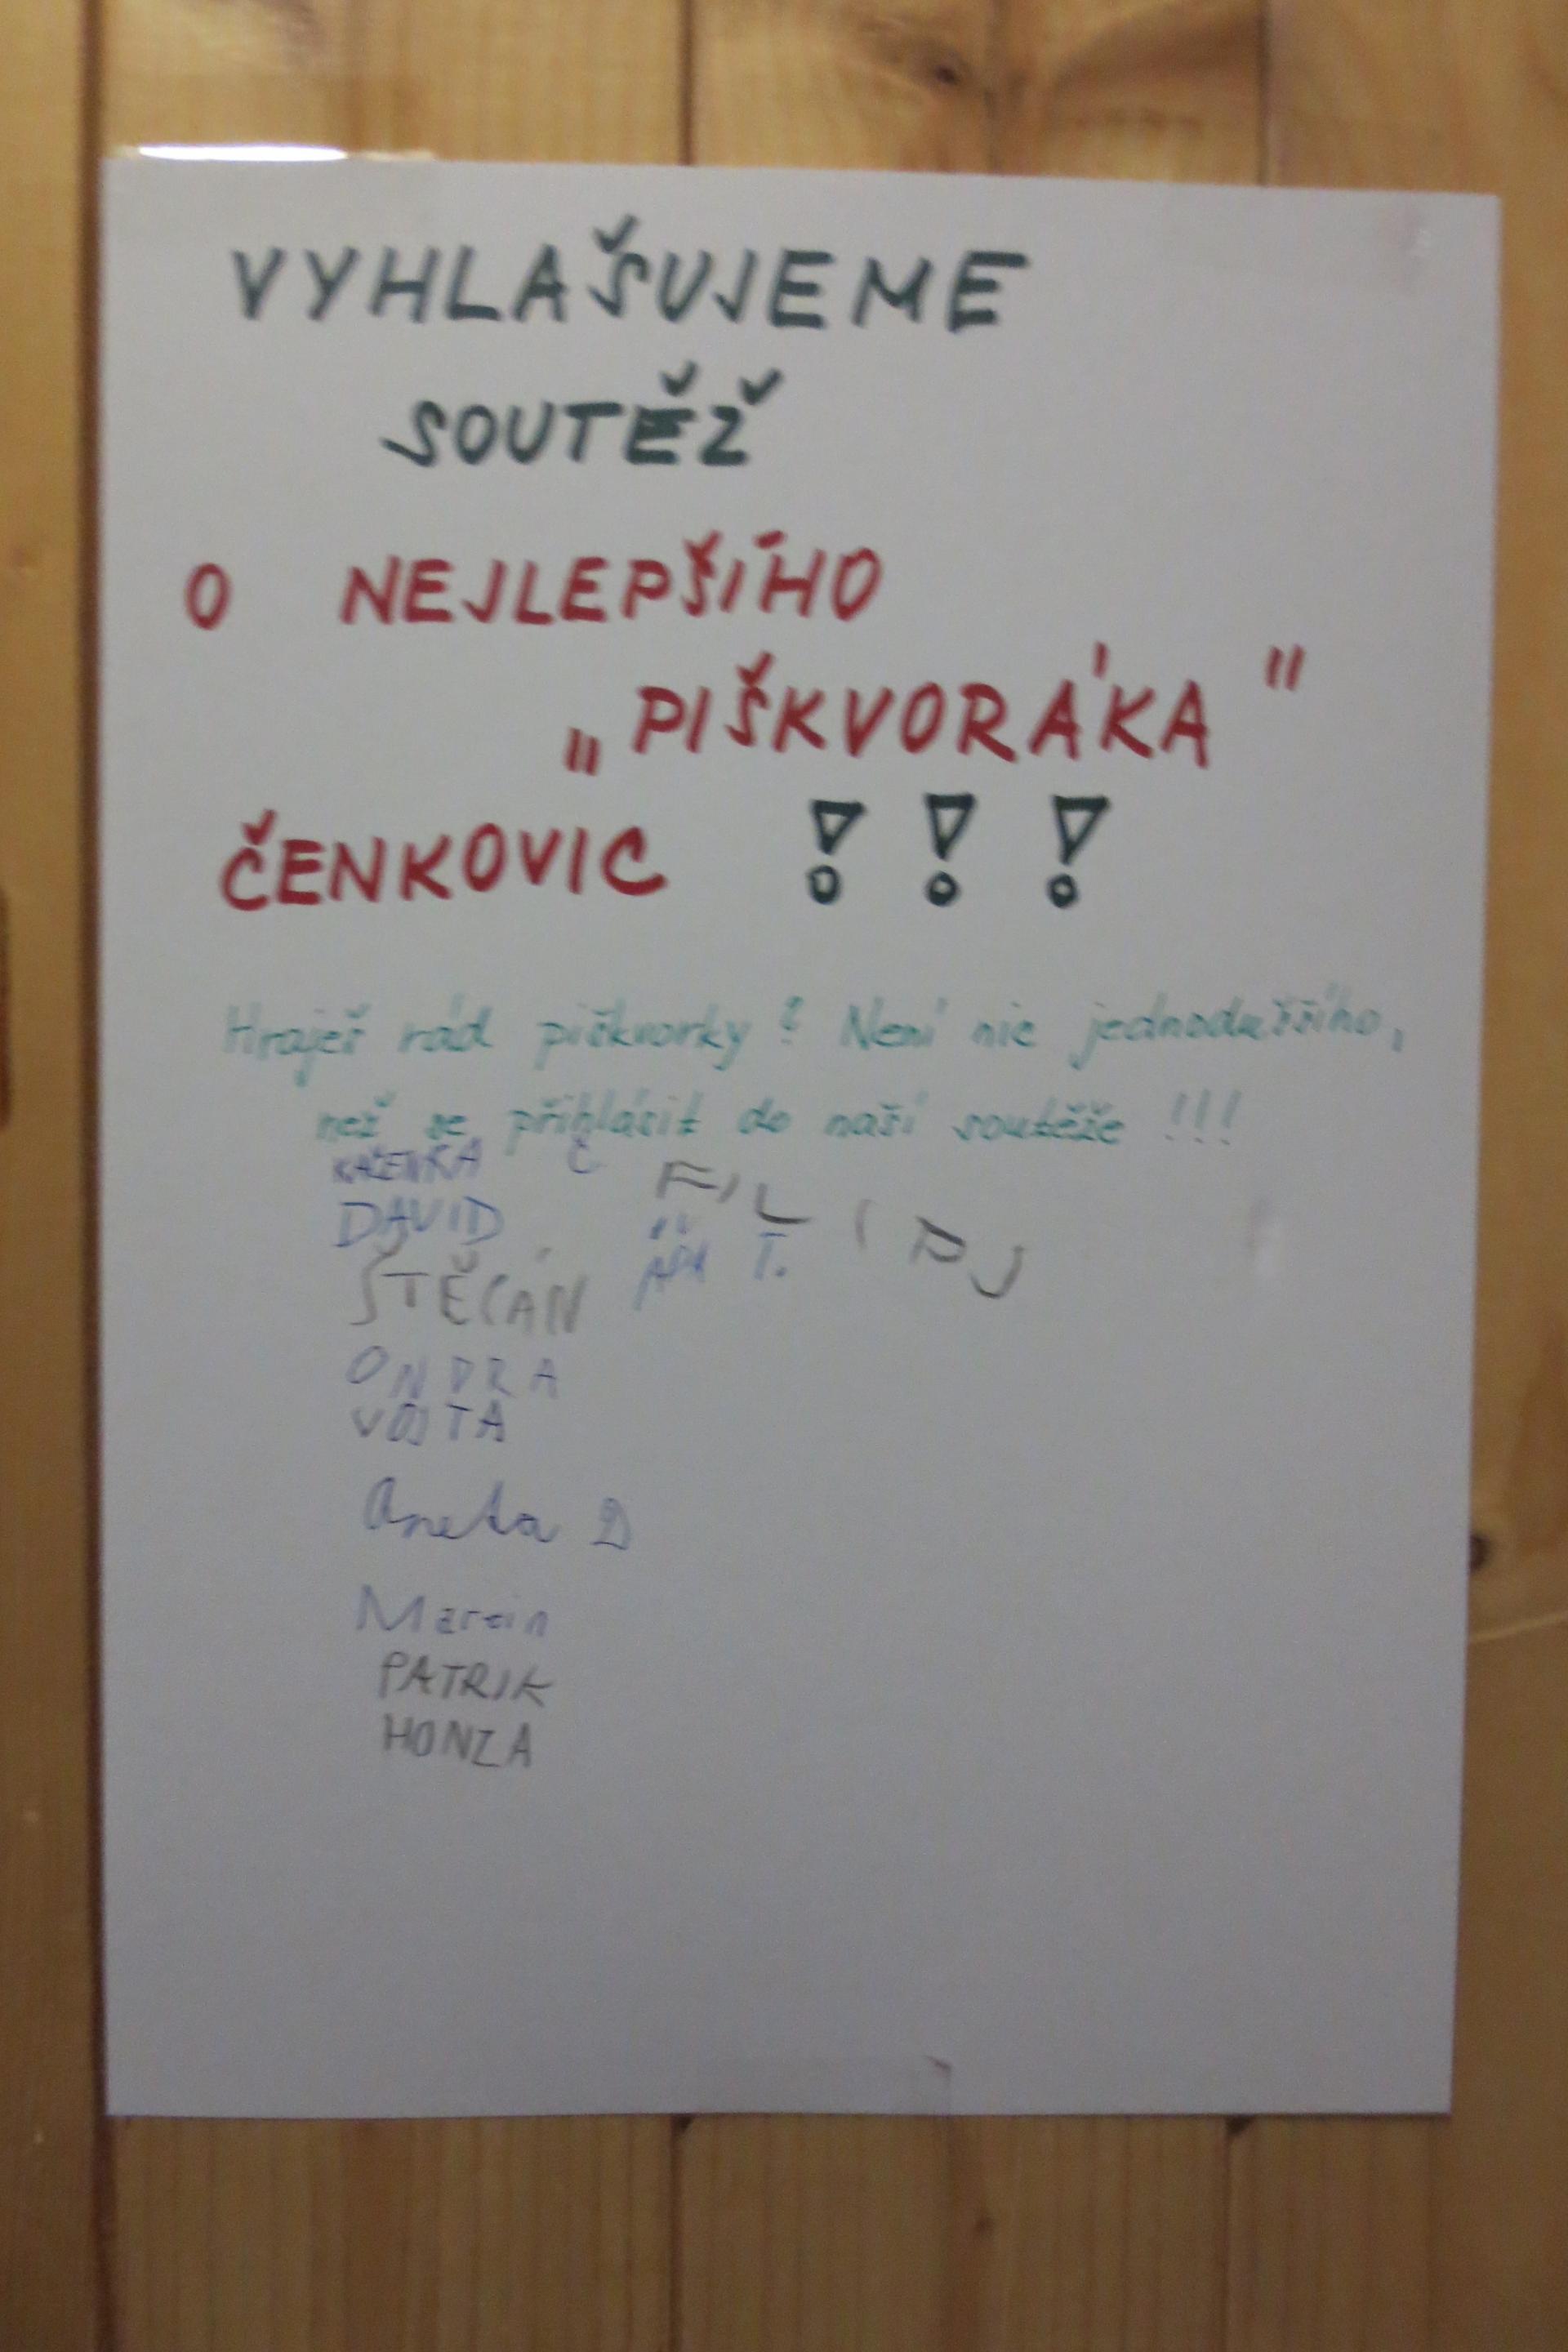 VYHLAŠUJEME
SOUTĚŽ
O NEJLEPŠÍHO
„PIŠKVORÁKA"
ČENKOVIC !!!
Hraješ rád piškvorky? Není nic jednoduššího,
než se přihlásit do naší soutěže !!!
KAČENKA Č
FILIP J
DAVID
T.
ŠTĚPÁN
ONDRA
VOJTA
Aneta D
Martin
PATRIK
HONZA